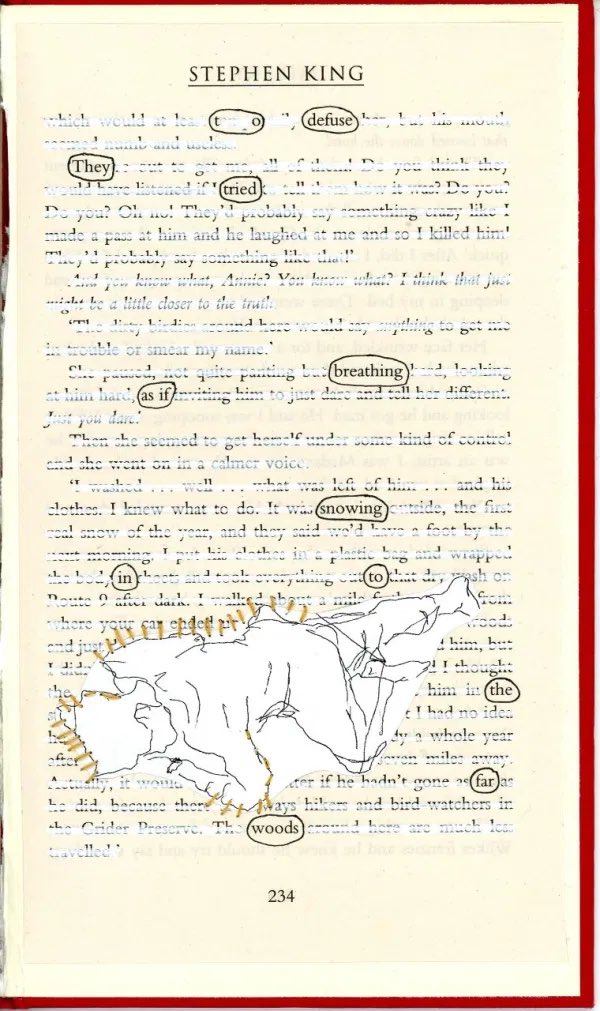 STEPHEN KING
which would at least t o , defuse her, but his mouth
seemed numb and useless.
They're out to get me, all of them! Do you think they
would have listened if I tried to tell them how it was? Do you?
Do you? Oh no! They'd probably say something crazy like I
made a pass at him and he laughed at me and so I killed him!
They'd probably say something like that!'
And you know what, Annie? You know what? I think that just
might be a little closer to the truth.
'The dirty birdies around here would say anything to get me
in trouble or smear my name.'
She paused, not quite panting but breathing hard, looking
at him hard, as if inviting him to just dare and tell her different.
Just you dare!
Then she seemed to get herself under some kind of control
and she went on in a calmer voice.
'I washed . . . well . . . what was left of him . . . and his
clothes. I knew what to do. It was snowing outside, the first
real snow of the year, and they said we'd have a foot by the
next morning. I put his clothes in a plastic bag and wrapped
the body in sheets and took everything out to that dry wash on
Route 9 after dark. I walked about a mile from
where your car ended woods
and just him, but
I didn' I thought
the him in the
I had no idea
a whole year
after seven miles away.
Actually, it would if he hadn't gone as far as
he did, because there hikers and bird-watchers in
the Grider Preserve. The woods around here are much less
travelled.'
234